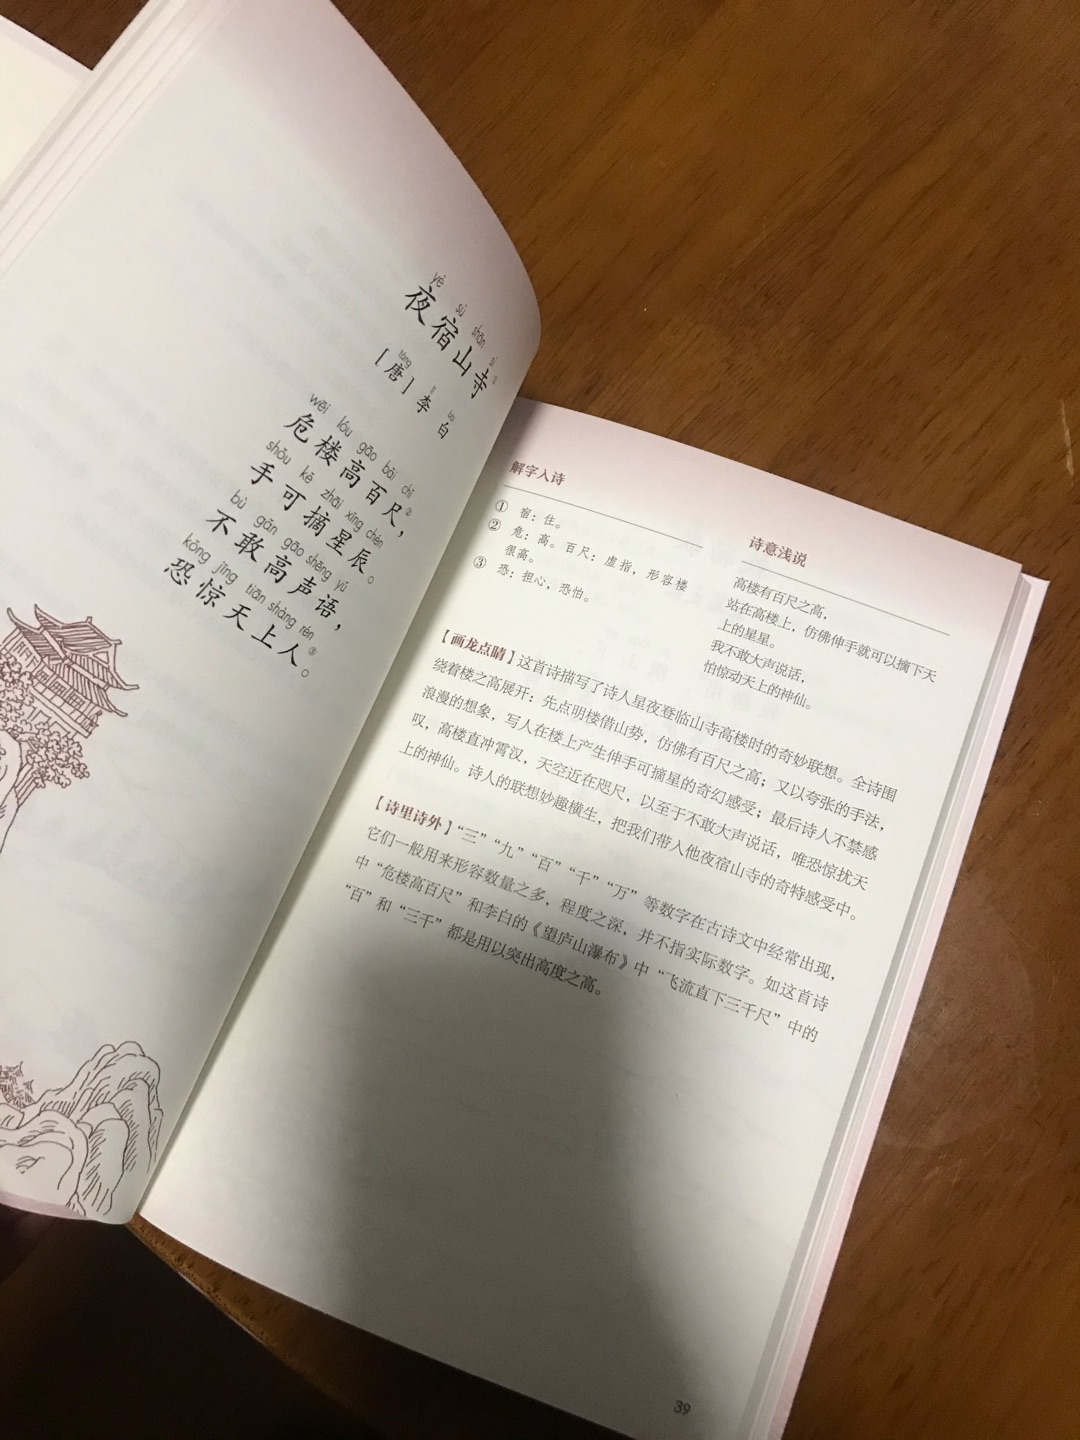 yè sù shān sì
夜宿山寺①
táng lǐ bái
［唐］李白
wēi lóu gāo bǎi chǐ
危楼高百尺②，
shǒu kě zhāi xīng chén
手可摘星辰。
bù gǎn gāo shēng yǔ
不敢高声语，
kǒng jīng tiān shàng rén
恐惊天上人③。
解字入诗
① 宿：住。
② 危：高。百尺：虚指，形容楼
很高。
③ 恐：担心，恐怕。
诗意浅说
高楼有百尺之高，
站在高楼上，仿佛伸手就可以摘下天
上的星星。
我不敢大声说话，
怕惊动天上的神仙。
【画龙点睛】这首诗描写了诗人星夜登临山寺高楼时的奇妙联想。全诗围
绕着楼之高展开：先点明楼借山势，仿佛有百尺之高；又以夸张的手法，
浪漫的想象，写人在楼上产生伸手可摘星的奇幻感受；最后诗人不禁感
叹，高楼直冲霄汉，天空近在咫尺，以至于不敢大声说话，唯恐惊扰天
上的神仙。诗人的联想妙趣横生，把我们带入他夜宿山寺的奇特感受中。
【诗里诗外】“三”“九”“百”“千”“万”等数字在古诗文中经常出现，
它们一般用来形容数量之多，程度之深，并不指实际数字。如这首诗
中“危楼高百尺”和李白的《望庐山瀑布》中“飞流直下三千尺”中的
“百”和“三千”都是用以突出高度之高。
39